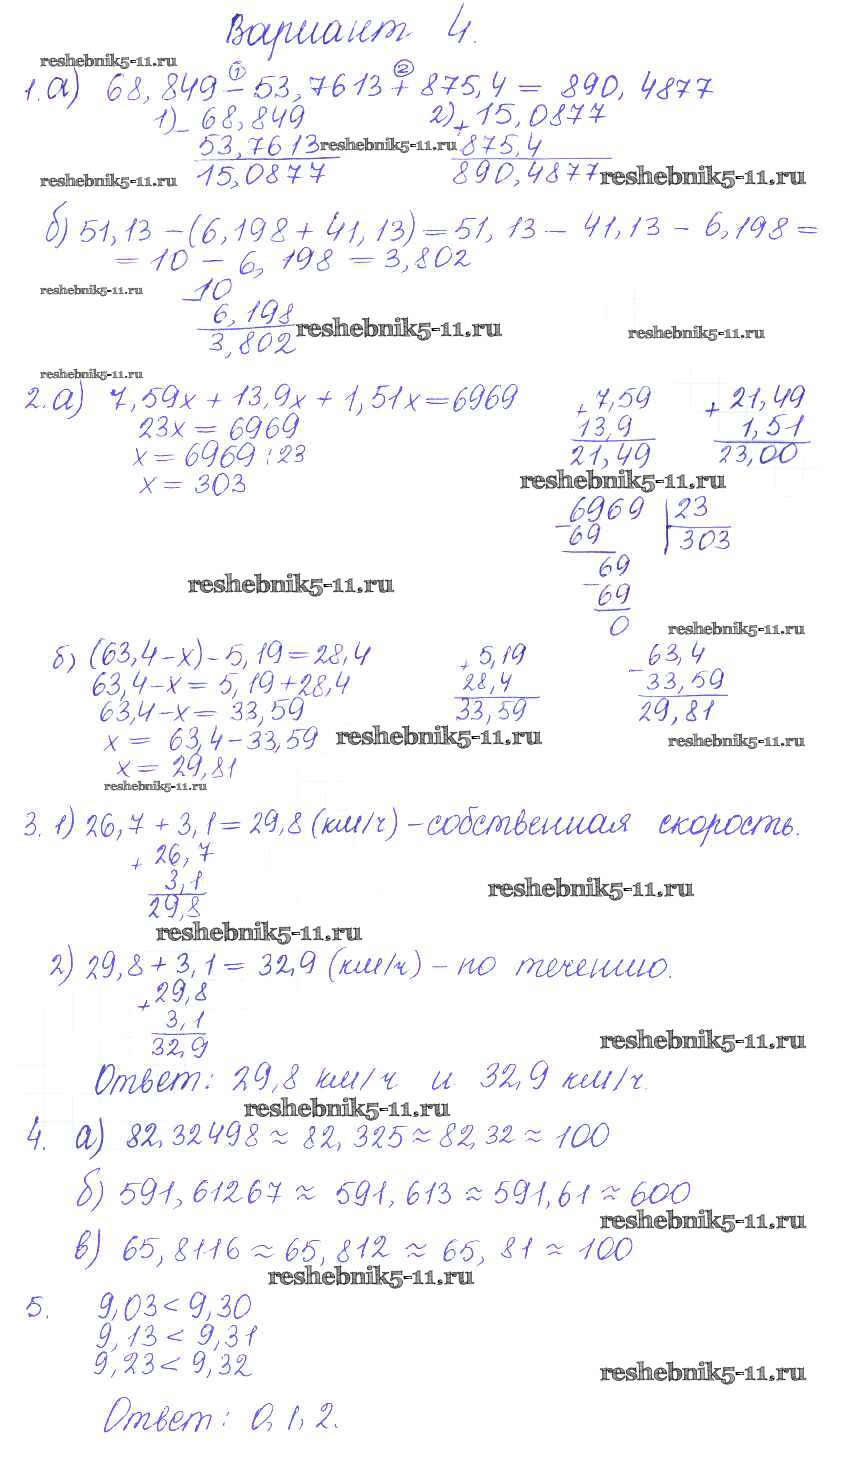 Вариант 4.
reshebnik5-11.ru
1. а) 68,849 - 53,7613 + 875,4 = 890,4877
① ②
1) - 68,849 2) + 15,0877
53,7613 reshebnik5-11.ru 875,4
reshebnik5-11.ru 15,0877 890,4877 reshebnik5-11.ru
б) 51,13 - (6,198 + 41,13) = 51,13 - 41,13 - 6,198 =
= 10 - 6,198 = 3,802
reshebnik5-11.ru - 10
6,198 reshebnik5-11.ru reshebnik5-11.ru
3,802
reshebnik5-11.ru
2. а) 7,59х + 13,9х + 1,51х = 6969 + 7,59 + 21,49
23х = 6969 13,9 1,51
х = 6969 : 23 21,49 23,00
х = 303 reshebnik5-11.ru
- 6969 | 23
69 303
reshebnik5-11.ru 69
- 69
0 reshebnik5-11.ru
б) (63,4 - х) - 5,19 = 28,4 + 5,19 - 63,4
63,4 - х = 5,19 + 28,4 28,4 33,59
63,4 - х = 33,59 33,59 29,81
х = 63,4 - 33,59 reshebnik5-11.ru reshebnik5-11.ru
х = 29,81
reshebnik5-11.ru
3. 1) 26,7 + 3,1 = 29,8 (км/ч) - собственная скорость.
+ 26,7
3,1 reshebnik5-11.ru
29,8
reshebnik5-11.ru
2) 29,8 + 3,1 = 32,9 (км/ч) - по течению.
+ 29,8
3,1
32,9 reshebnik5-11.ru
Ответ: 29,8 км/ч и 32,9 км/ч.
reshebnik5-11.ru
4. а) 82,32498 ≈ 82,325 ≈ 82,32 ≈ 100
б) 591,61267 ≈ 591,613 ≈ 591,61 ≈ 600
reshebnik5-11.ru
в) 65,8116 ≈ 65,812 ≈ 65,81 ≈ 100
reshebnik5-11.ru
5. 9,03 < 9,30
9,13 < 9,31
9,23 < 9,32
reshebnik5-11.ru
Ответ: 0,1,2.